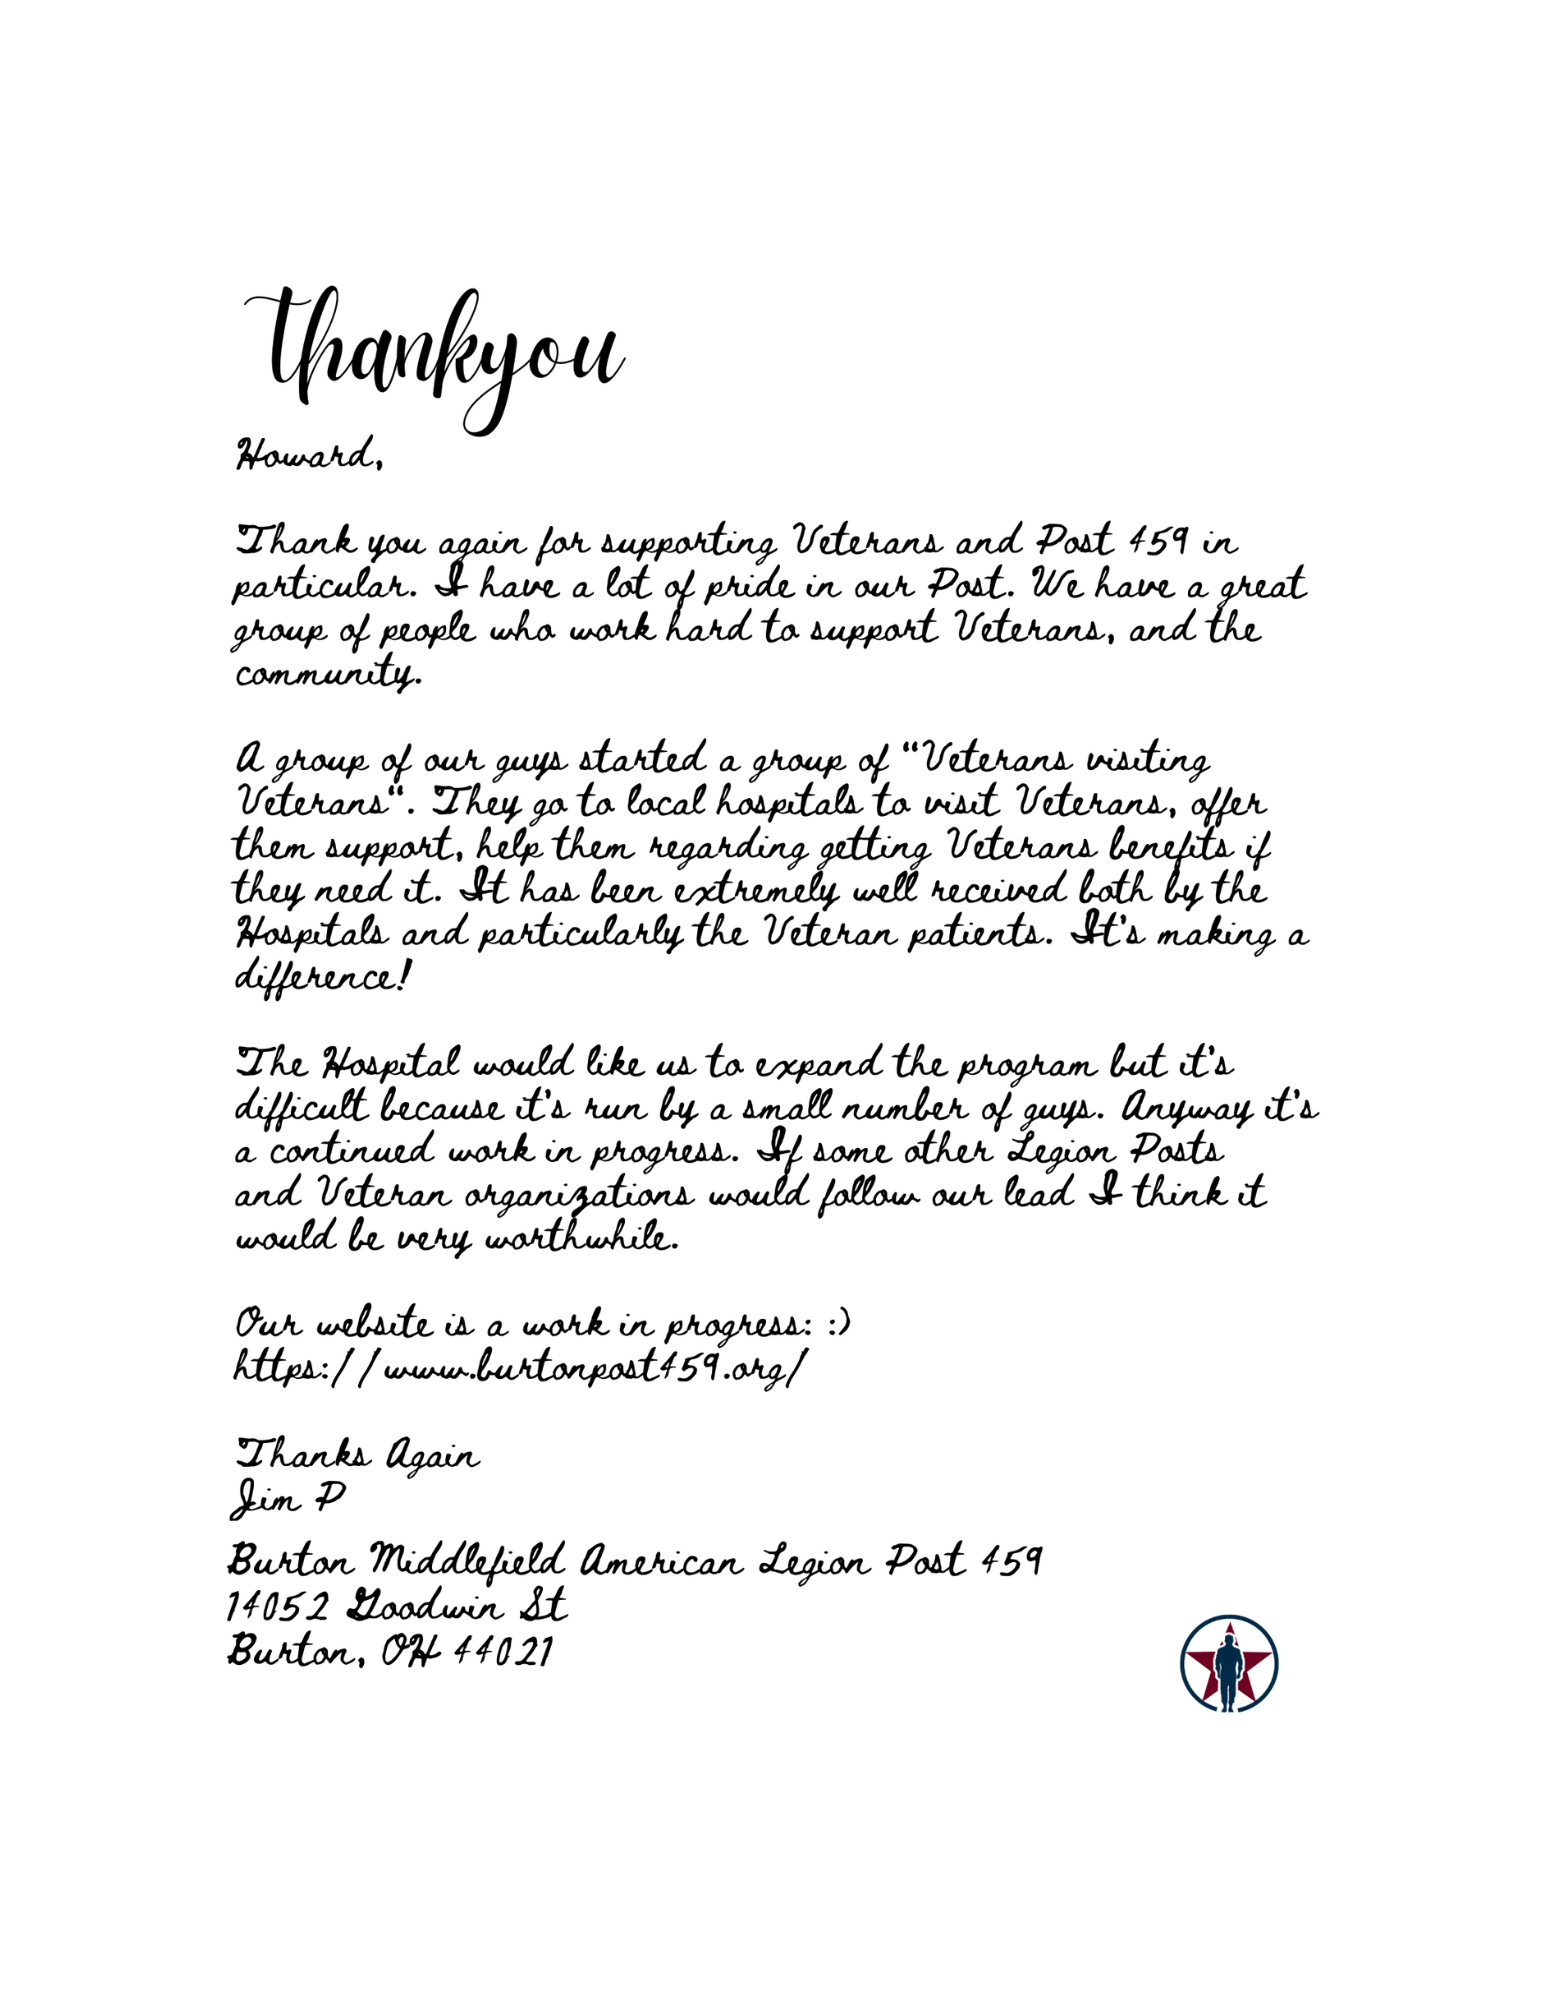 thankyou
Howard,
Thank you again for supporting Veterans and Post 459 in
particular. I have a lot of pride in our Post. We have a great
group of people who work hard to support Veterans, and the
community.
A group of our guys started a group of “Veterans visiting
Veterans“. They go to local hospitals to visit Veterans, offer
them support, help them regarding getting Veterans benefits if
they need it. It has been extremely well received both by the
Hospitals and particularly the Veteran patients. It's making a
difference!
The Hospital would like us to expand the program but it's
difficult because it's run by a small number of guys. Anyway it's
a continued work in progress. If some other Legion Posts
and Veteran organizations would follow our lead I think it
would be very worthwhile.
Our website is a work in progress: :)
https://www.burtonpost459.org/
Thanks Again
Jim P
Burton Middlefield American Legion Post 459
14052 Goodwin St
Burton, OH 44021